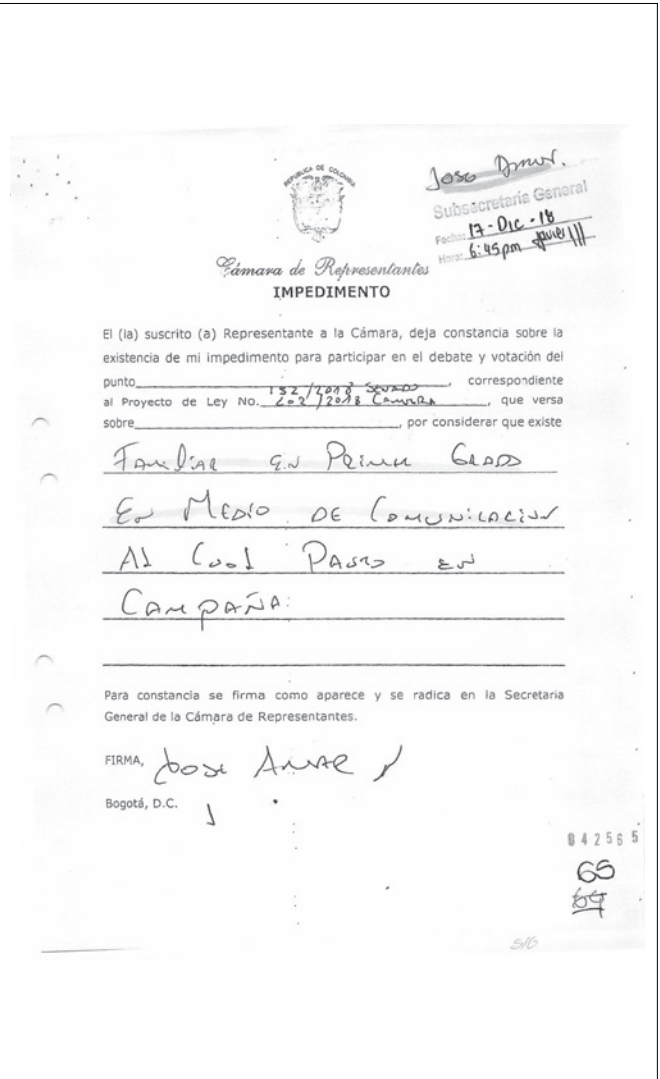 REPUBLICA DE COLOMBIA
Jose
Subsecretaría General
Fecha: 17-Dic-18
Hora: 6:45pm
Cámara de Representantes
IMPEDIMENTO
El (la) suscrito (a) Representante a la Cámara, deja constancia sobre la
existencia de mi impedimento para participar en el debate y votación del
punto 152/2018 SENADO, correspondiente
al Proyecto de Ley No. 202/2018 CAMARA, que versa
sobre, por considerar que existe
FAMiliAR EN PRIMER GRADO
EN MEDIO DE COMUNICACION
Al CuAl PAUTO EN
CAMPAÑA.
Para constancia se firma como aparece y se radica en la Secretaria
General de la Cámara de Representantes.
FIRMA, Jose
Bogotá, D.C.
042565
65
69